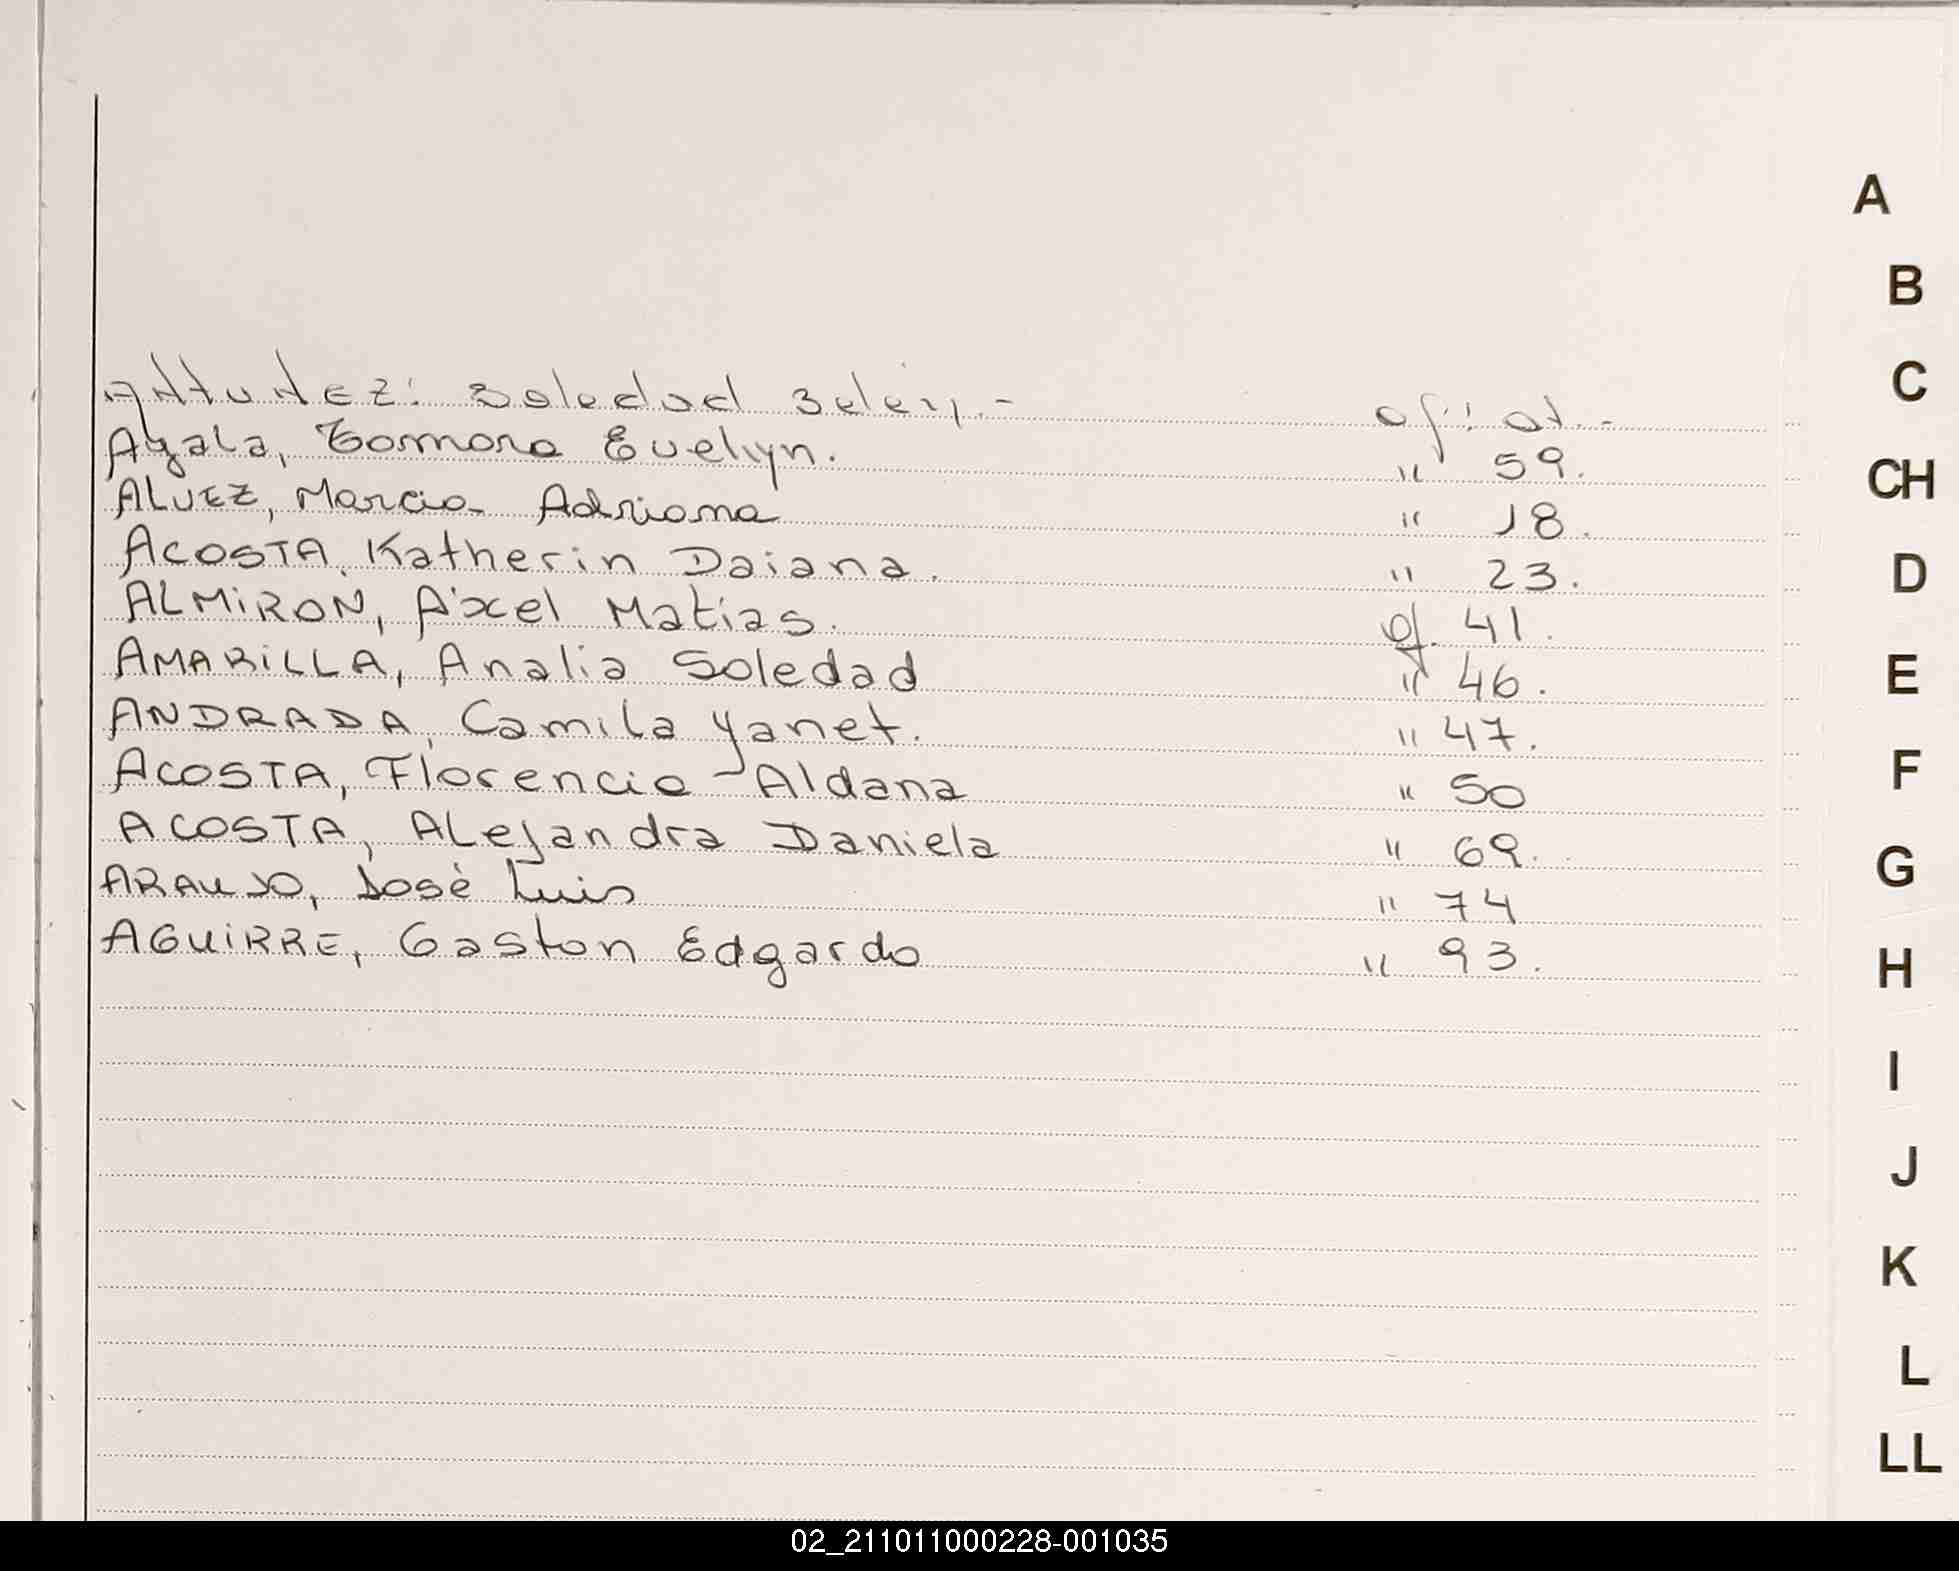 Antunez: Soledad Belén.- of: 01.-
Ayala, Tamara Evelyn. " 59.
ALVEZ, Marcia Adriana " 18.
ACOSTA, Katherin Daiana. " 23.
ALMiRON, Áxel Matias. of. 41.
AMARiLLA, Analia Soledad " 46.
ANDRADA, Camila Yanet. " 47.
ACOSTA, Florencia Aldana " 50
ACOSTA, ALejandra Daniela " 69.
ARAUJO, José Luis " 74
AGUiRRE, Gaston Edgardo " 93.
A
B
C
CH
D
E
F
G
H
I
J
K
L
LL
02_211011000228-001035